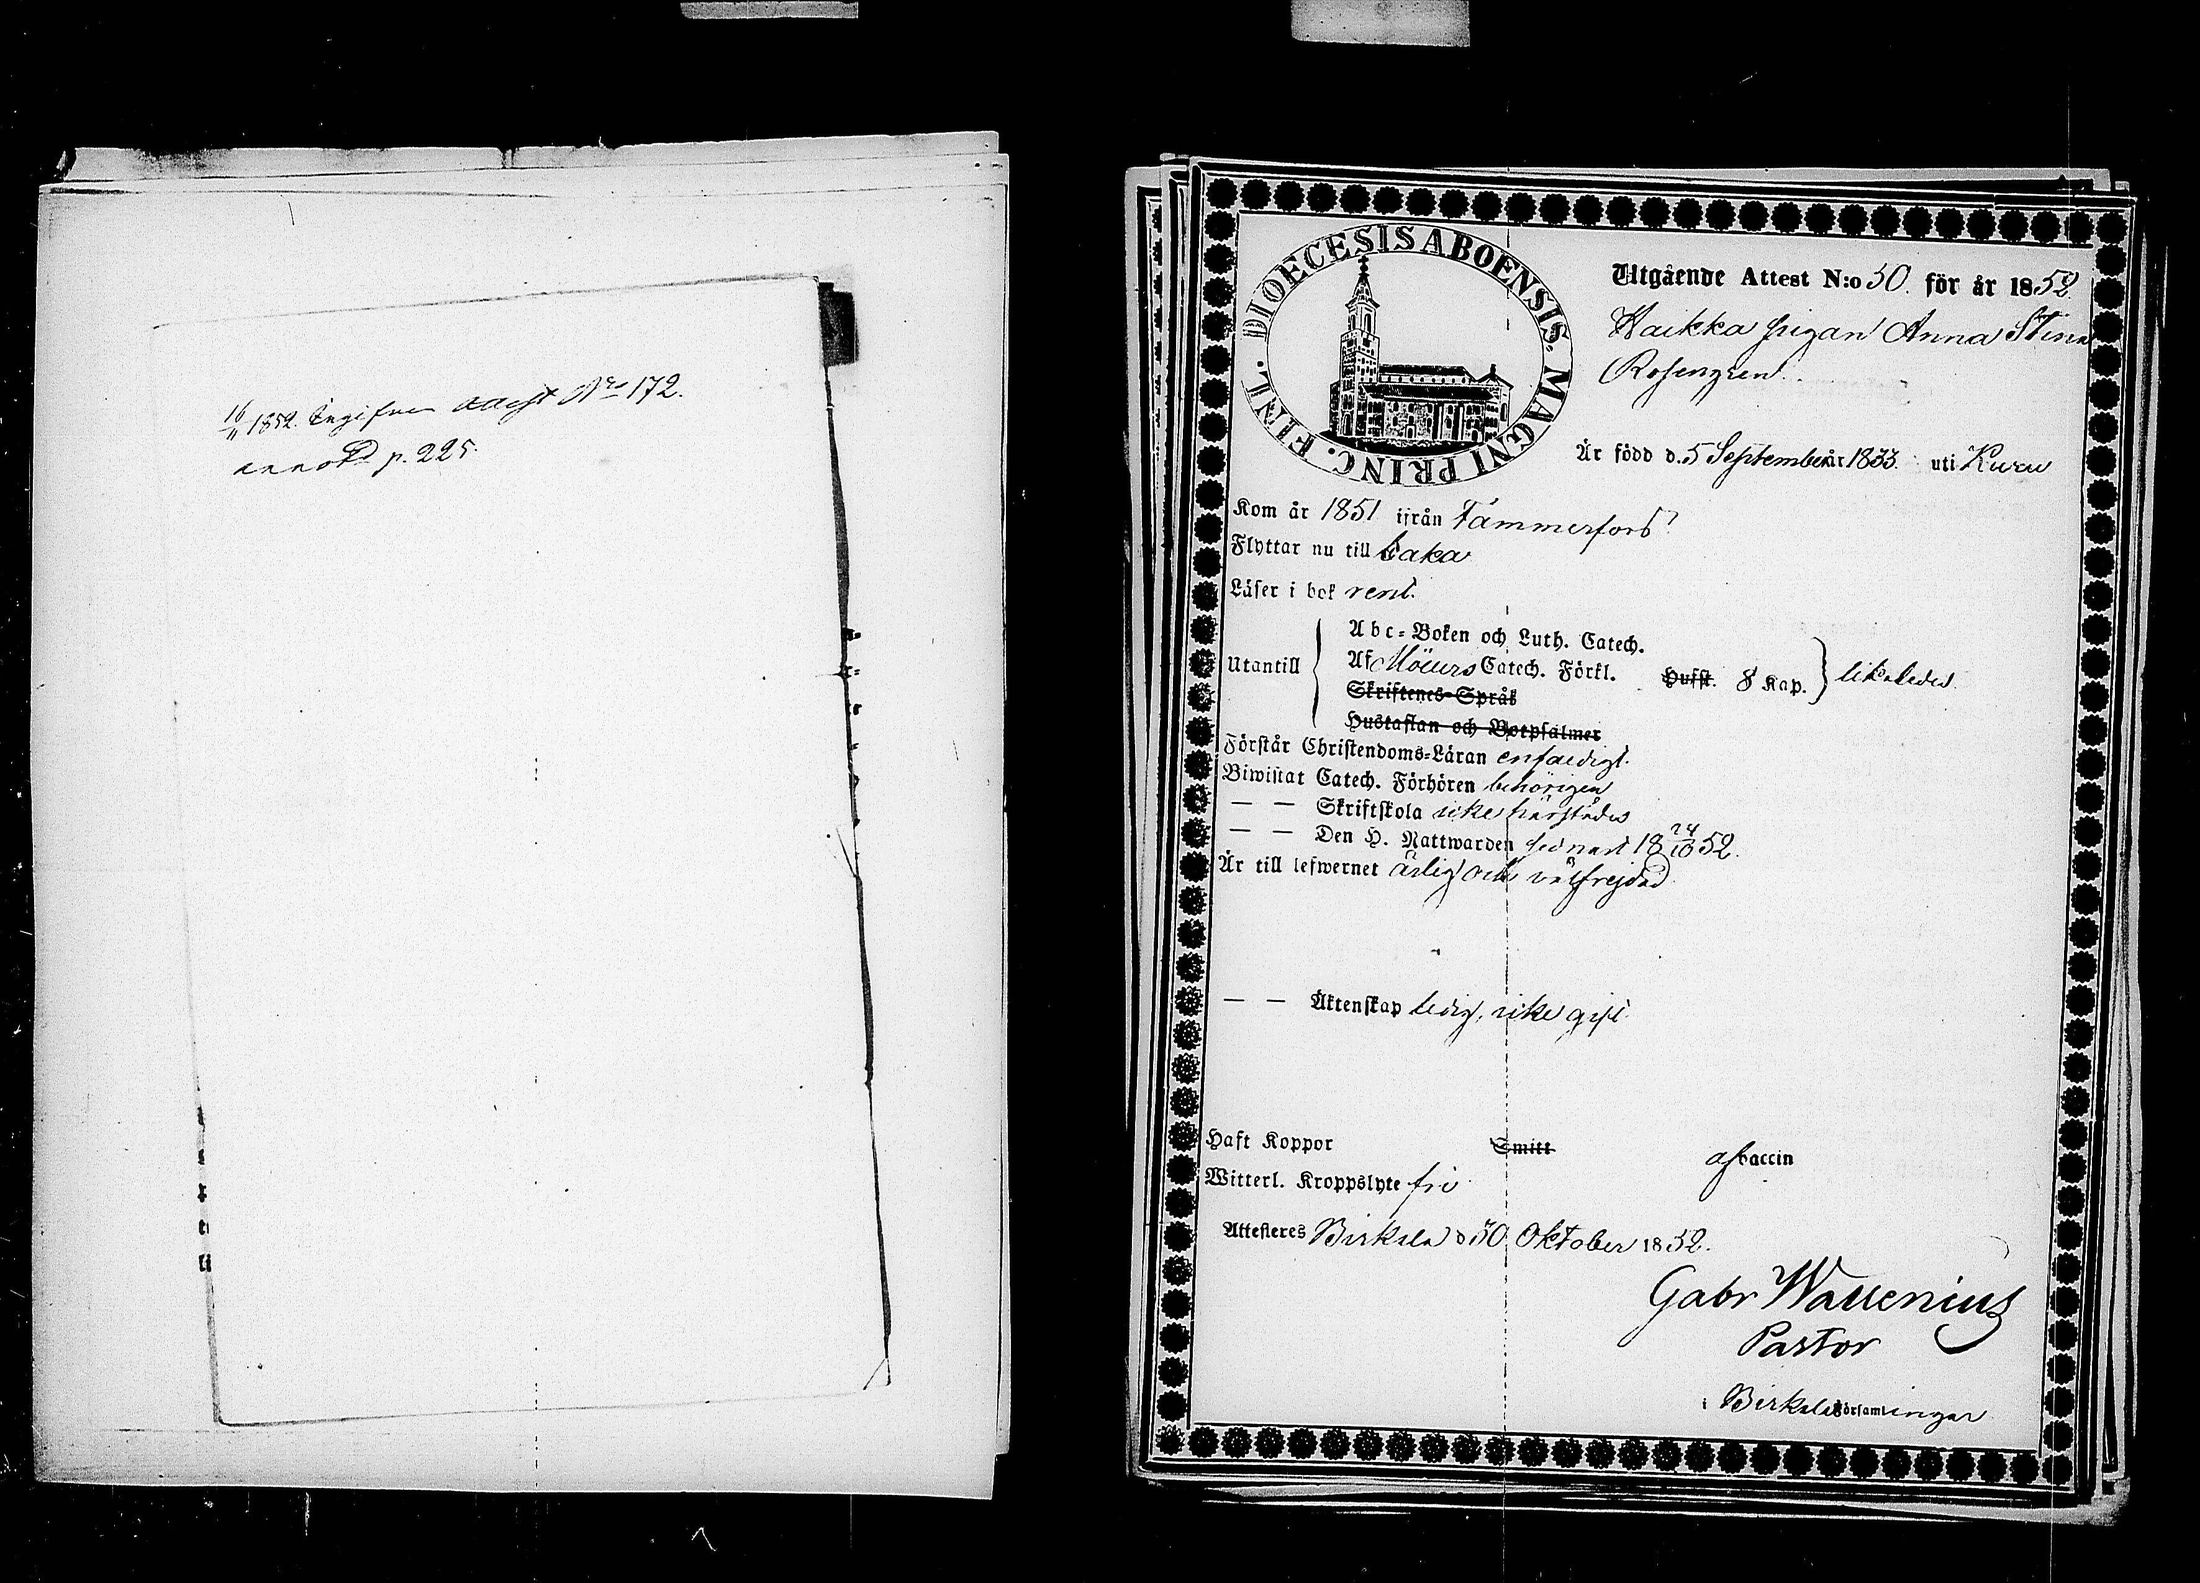 16/11 1852. Ingifven Attest Nro 172.
annot. p. 225.
DIOECESIS ABOENSIS. MAGNI PRINC. FINL.
Utgående Attest N:o 50. för år 1852.
Haikka pigan Anna Stina
Rosengren.
Är född d. 5 September år 1833. uti Kuru
Kom år 1851 ifrån Tammerfors
Flyttar nu till baka
Läser i bok rent.
Utantill
Abc-Boken och Luth. Catech.
Af Möllers Catech. Förkl.
Husst. 8 Kap. likaledes.
Skriftenes-Språk
Hustaflan och Botpsalmer
Förstår Christendoms-Läran enfaldigt.
Biwistat Catech. Förhören behörigen
— — Skriftskola icke härstädes
— — Den H. Nattwarden sednast 18 24/10 52.
Är till lefwernet ärlig och välfrejdad
— — Äktenskap ledig, icke gift
Haft Koppor Smitt af vaccin
Witterl. Kroppslyte fri
Attesteres Birkala d 30 Oktober 1852.
Gabr Wallenius
Pastor
i Birkala Församlingar